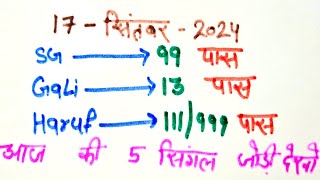 17 - सितंबर - 2024
SG → 99 पास
Gali → 13 पास
Haruf → 111/999 पास
आज की 5 सिंगल जोड़ी देखो